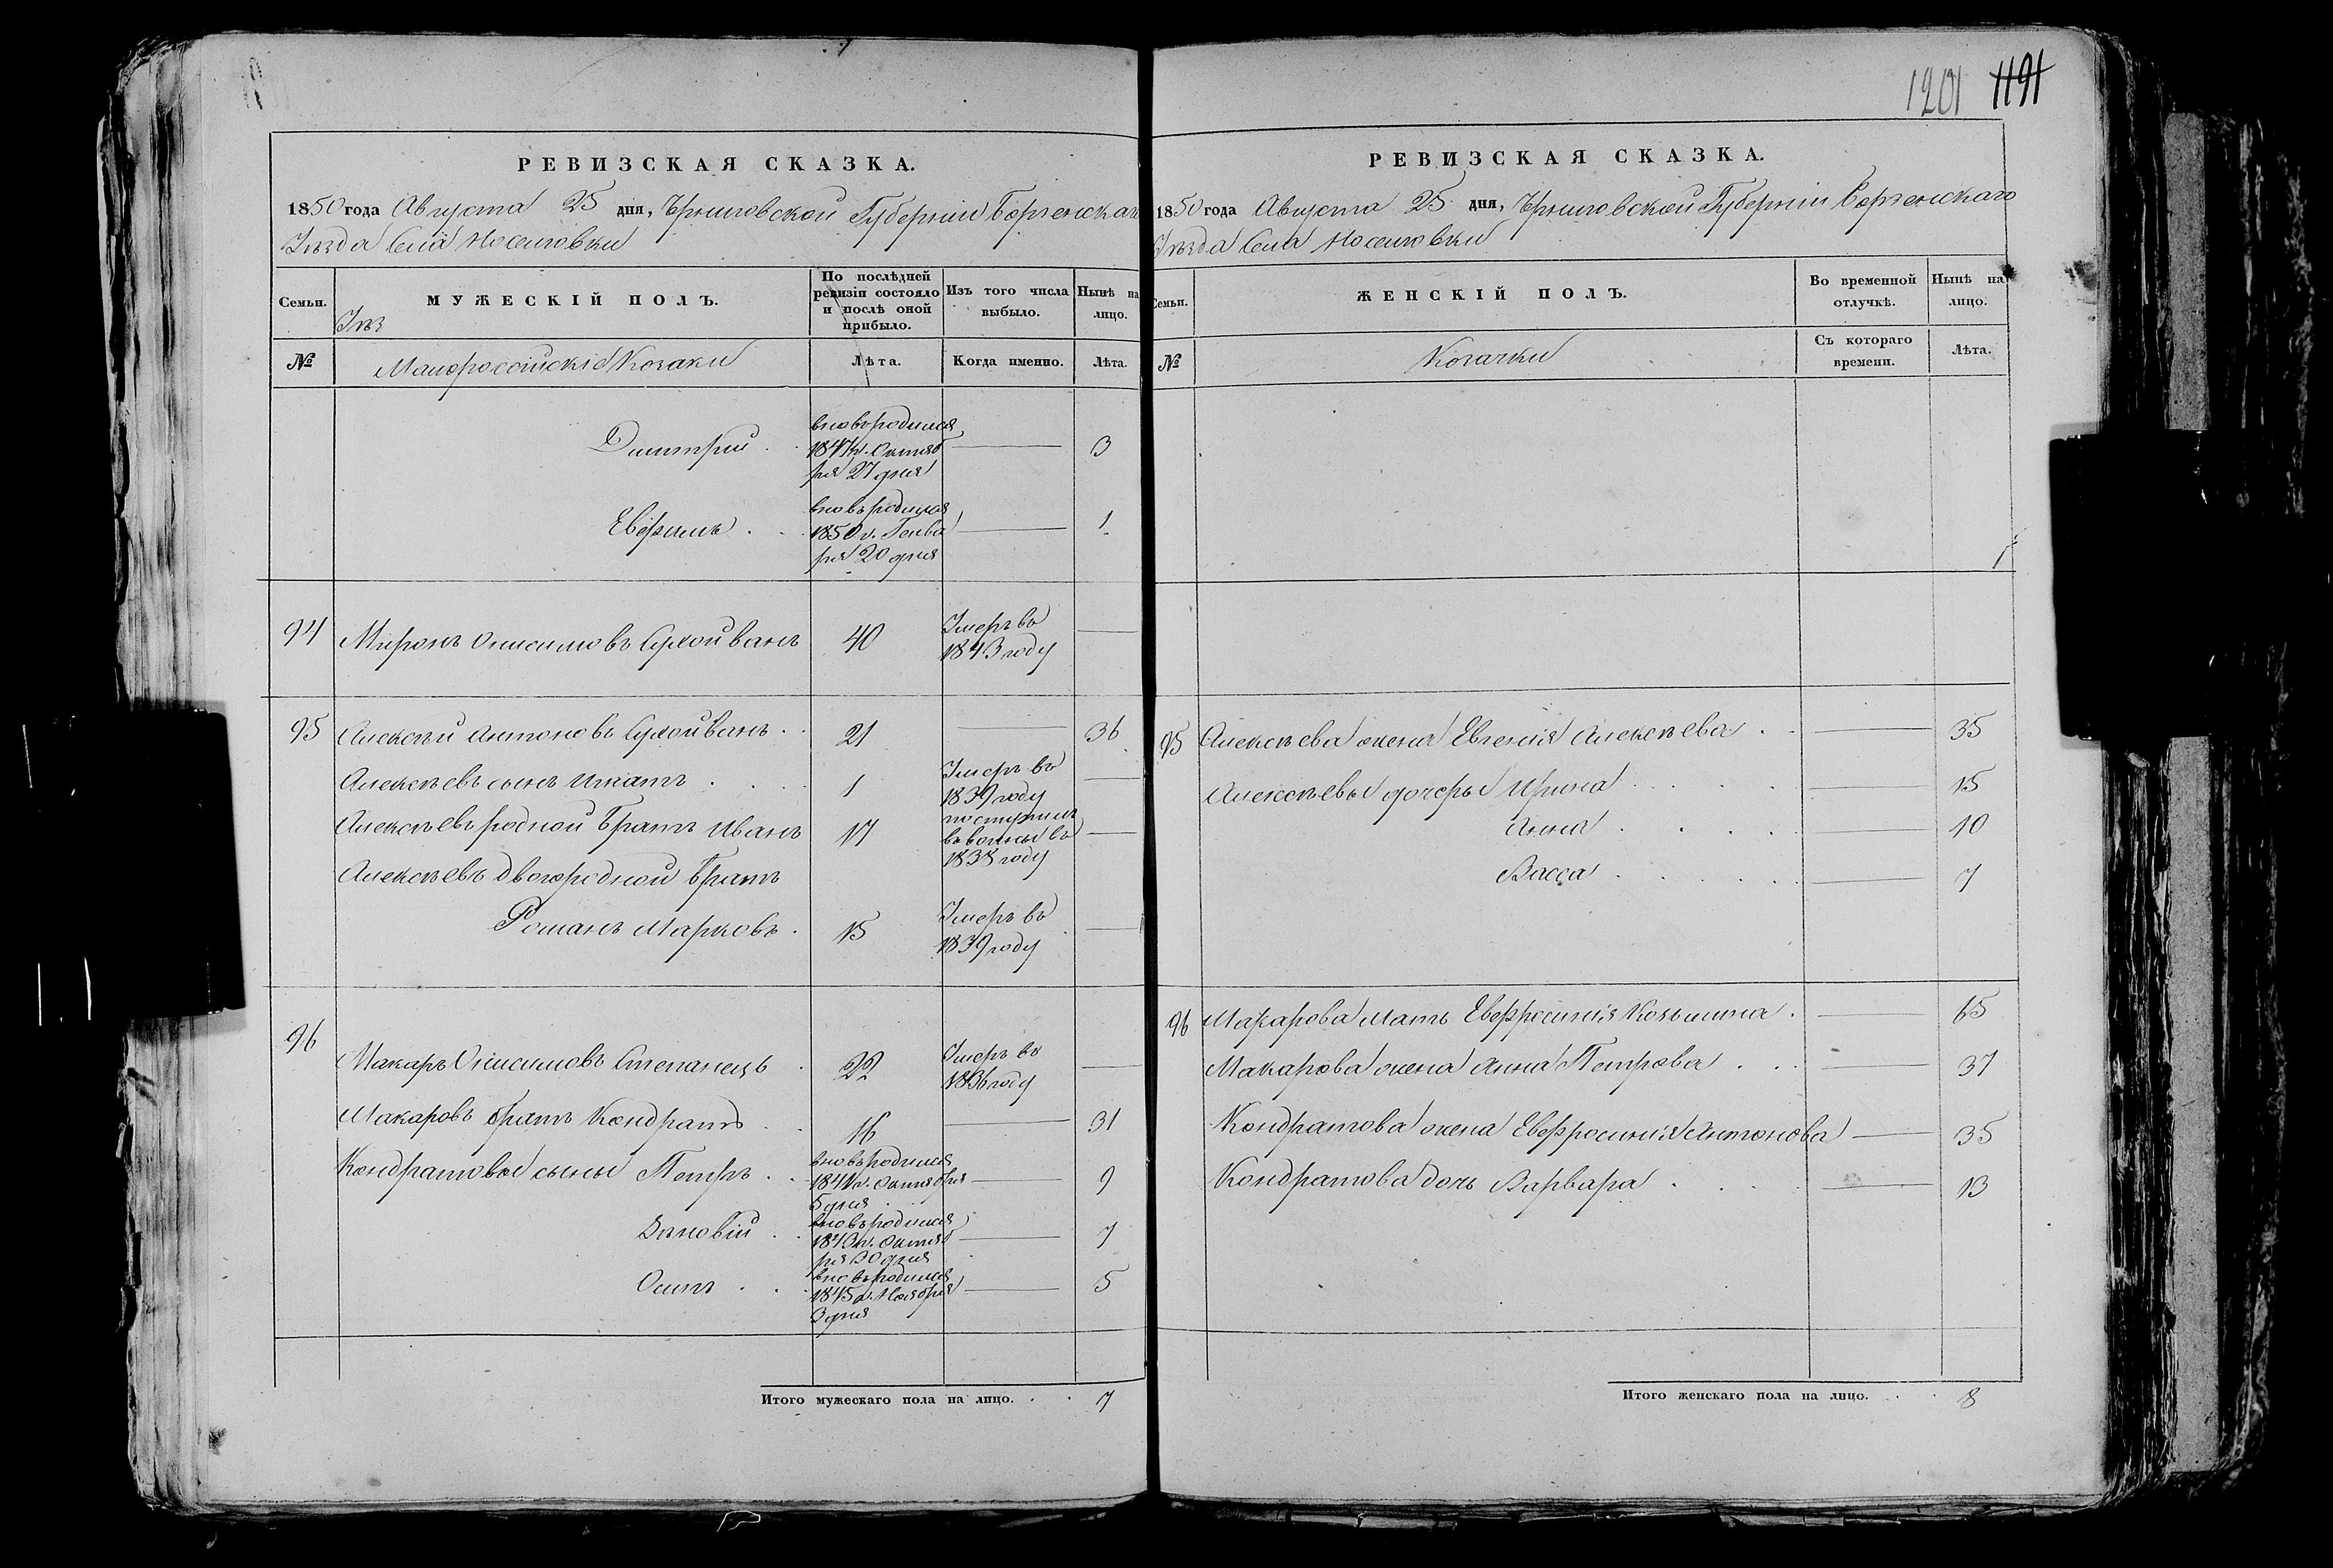 РЕВИЗСКАЯ СКАЗКА.
1850 года Августа 25 дня, Черниговской Губернии Борзенскаго
Уезда Села Носеловки
Семьи.
МУЖЕСКІЙ ПОЛЪ.
По послѣдней ревизіи состояло и послѣ оной прибыло.
Изъ того числа выбыло.
Нынѣ на лицо.
№
Малороссійскіе Козаки
Лѣта.
Когда именно.
Лѣта.
Димитрий вновь родился 1847 г. Октября 27 дня — 3
Евфимъ вновь родился 1850 г. Генваря 20 дня — 1
94 Миронъ Онисимовъ Сулойванъ 40 Умеръ въ 1843 году —
95 Алексѣй Антоновъ Сулойванъ 21 — 36
Алексѣевъ сынъ Игнатъ 1 Умеръ въ 1839 году —
Алексѣевъ родной братъ Иванъ 17 поступилъ въ воины въ 1838 году —
Алексѣевъ двоюродной братъ
Романъ Марковъ 15 Умеръ въ 1839 году —
96
Макаръ Онисимовъ Степанецъ 22 Умеръ въ 1836 году —
Макаровъ братъ Кондратъ 16 — 31
Кондратовы сыны Петръ вновь родился 1841 г. Октября 5 дня — 9
Зѣновій вновь родился 1843 г. Октября 30 дня — 7
Осипъ вновь родился 1845 г. Ноября 3 дня — 5
Итого мужескаго пола на лицо. 7
1201 1191
РЕВИЗСКАЯ СКАЗКА.
1850 года Августа 25 дня, Черниговской Губерніи Борзенскаго
Уезда Села Носеловки
Семьи.
ЖЕНСКІЙ ПОЛЪ.
Во временной отлучкѣ.
Нынѣ на лицо.
№
Козачки
Съ котораго времени.
Лѣта.
95 Алексѣева жена Евгенія Алексѣева — 35
Алексѣевы дочери Ирина — 15
Анна — 10
Васса — 7
96 Макарова мать Евфросинія Козьмина — 65
Макарова жена Анна Петрова — 37
Кондратова жена Евфросинія Антонова — 35
Кондратова дочь Варвара — 13
Итого женскаго пола на лицо. 8